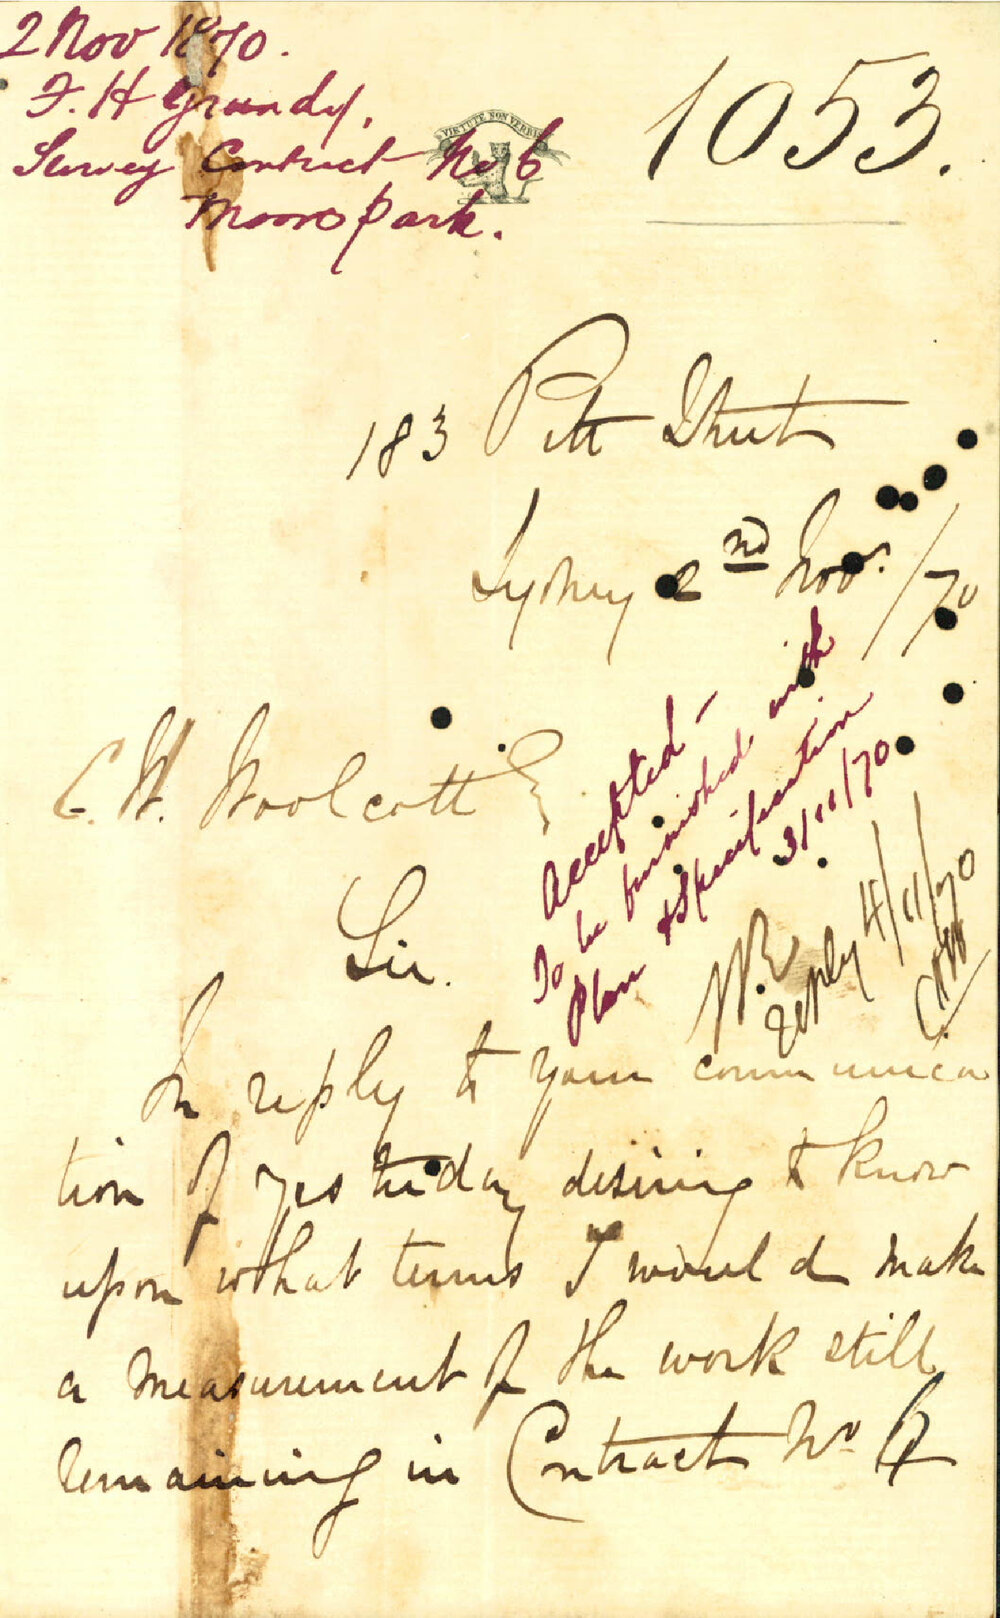 2 Nov 1870.
F. H Grundy,
Survey Contract No 6
Moore Park.
VIRTUTE NON VERBIS
1053.
183 Pitt Street
Sydney 2nd Nov. /70
C. W. Woolcott
Accepted -
To be furnished with
Plan & Specification
3/11/70
reply 4/11/70
CHW
Sir.
In reply to your communica
tion of yesterday desiring to know
upon what terms I would make
a measurement of the work still
remaining in Contract No 6